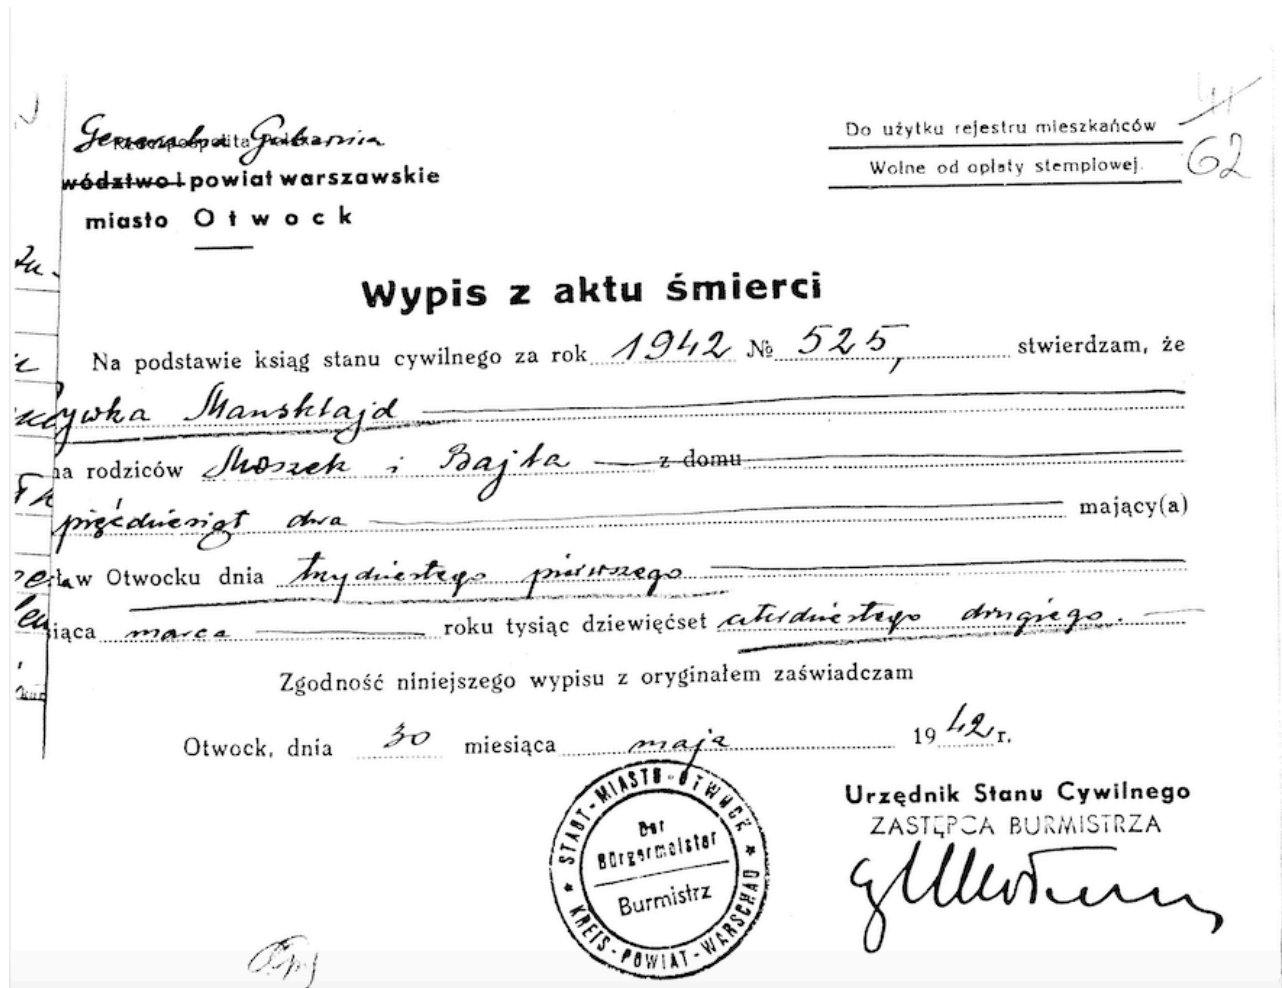 Generalna Gubernia
Rzeczpospolita Polska
wództwo i powiat warszawskie
miasto Otwock
Do użytku rejestru mieszkańców
Wolne od opłaty stemplowej.
41
62
Wypis z aktu śmierci
Na podstawie ksiąg stanu cywilnego za rok 1942 № 525, stwierdzam, że
Mansklajd
na rodziców Moszek i Bajla z domu
pięćdziesiąt dwa mający(a)
ła w Otwocku dnia trzydziestego pierwszego
iąca marca roku tysiąc dziewięćset czterdziestego drugiego.
Zgodność niniejszego wypisu z oryginałem zaświadczam
Otwock, dnia 30 miesiąca maja 1942 r.
Urzędnik Stanu Cywilnego
ZASTĘPCA BURMISTRZA
STADT-MIASTO-OTWOCK
KREIS-POWIAT-WARSCHAU
Der
Bürgermeister
Burmistrz